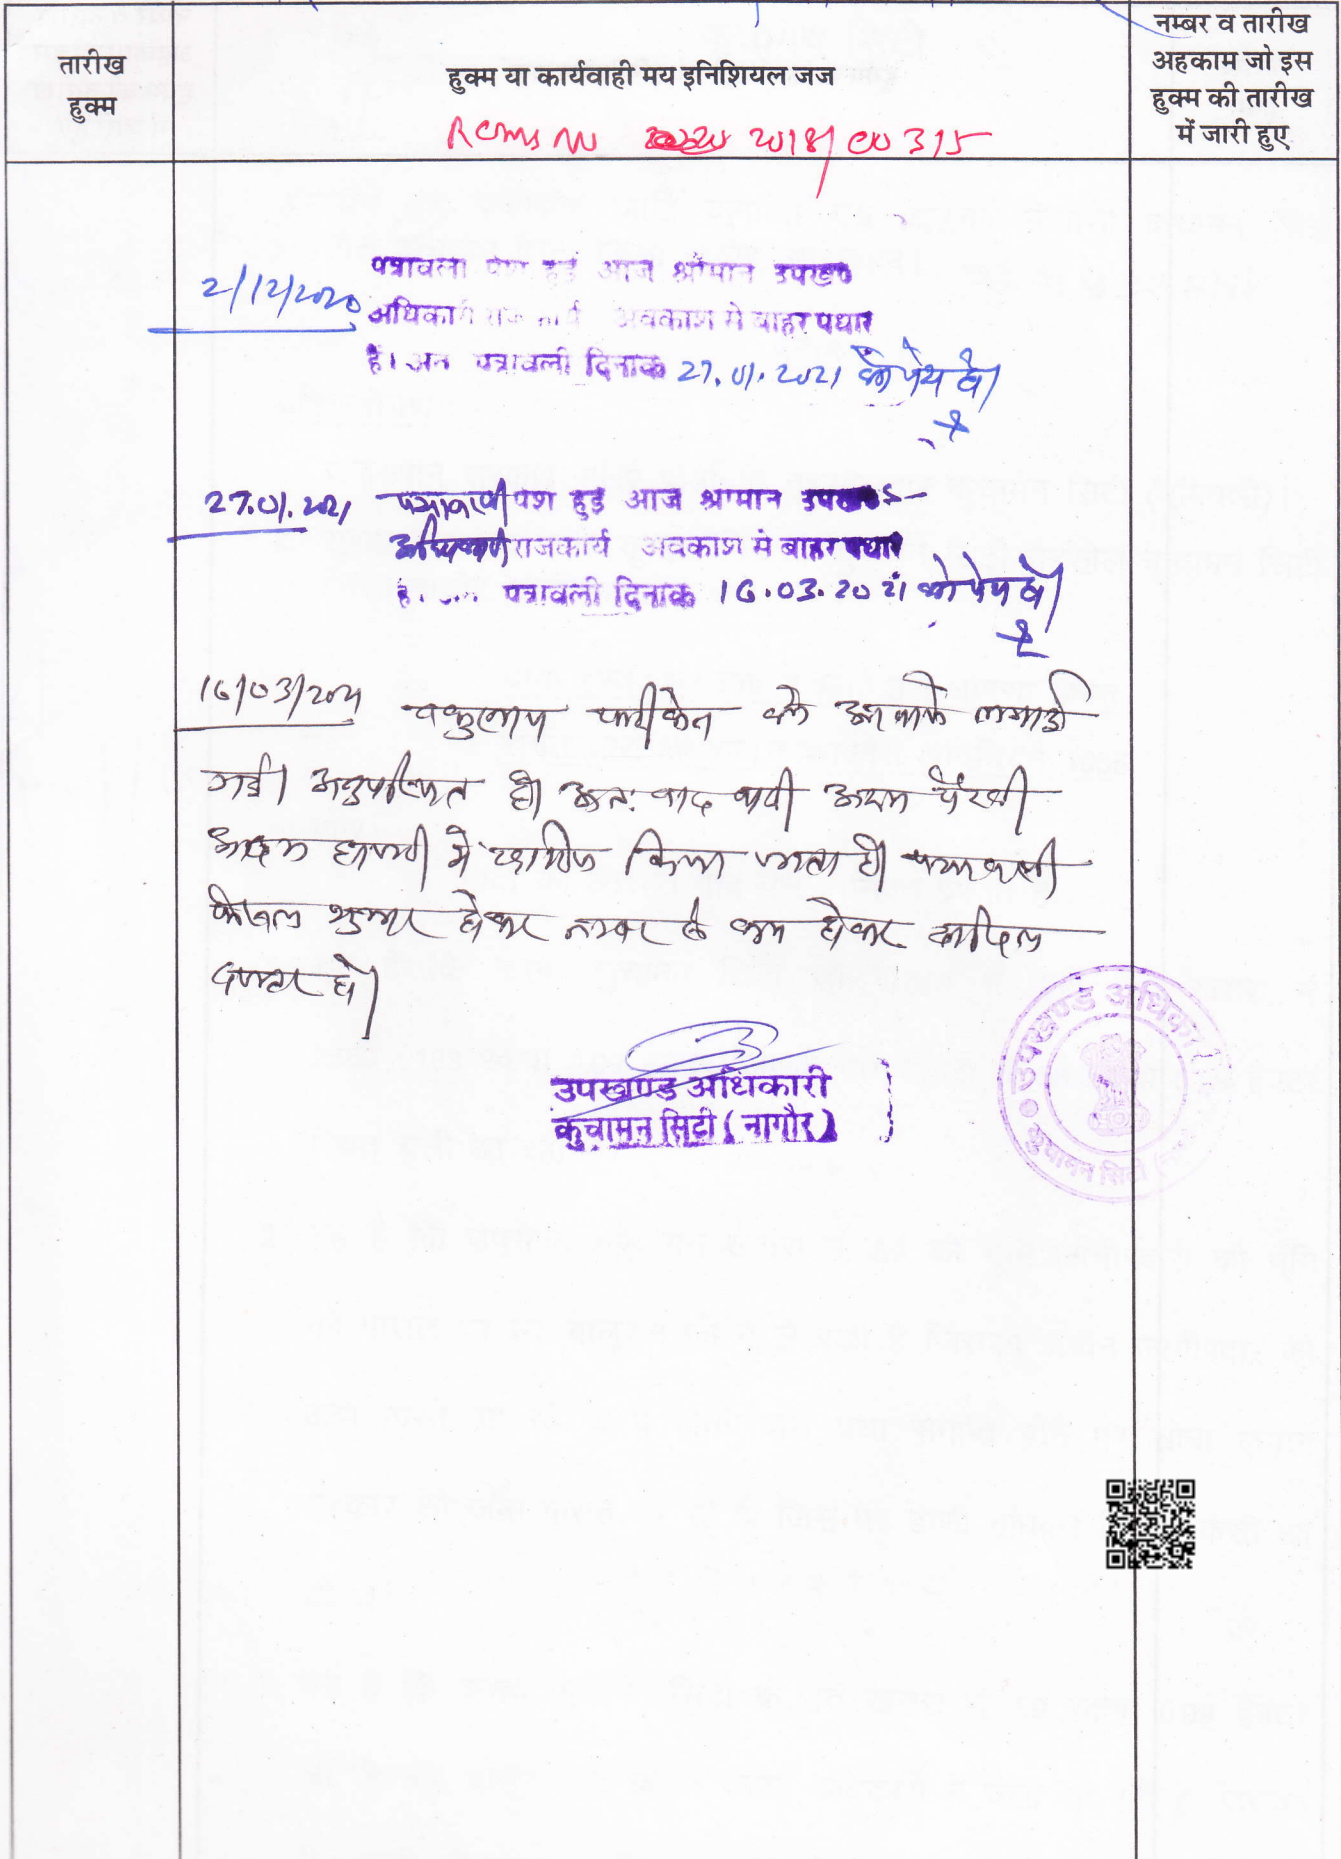 तारीख
हुक्म
हुक्म या कार्यवाही मय इनिशियल जज
नम्बर व तारीख
अहकाम जो इस
हुक्म की तारीख
में जारी हुए
Rcms No 2018/00315
2/12/2020 पत्रावली पेश हुई आज श्रीमान उपखण्ड
अधिकारी राजकार्य अवकाश मे बाहर पधारे
है। अतः पत्रावली दिनांक 27.01.2021 को पेश हो।
27.01.2021 पत्रावली पेश हुई आज श्रीमान उपखण्ड
अधिकारी राजकार्य अवकाश मे बाहर पधारे
है। अतः पत्रावली दिनांक 16.03.2021 को पेश हो।
16/03/2021 वकुलाय फरीकेन को आवाजे लगाई
गई। अनुपस्थित है। अतः वाद वादी अदम पैरवी
अदम हाजरी मे खारिज किया जाता है। पत्रावली
फैसल शुमार होकर नम्बर से कम होकर दाखिल
दफ्तर हो।
उपखण्ड अधिकारी
कुचामन सिटी (नागौर)
उपखण्ड अधिकारी
कुचामन सिटी